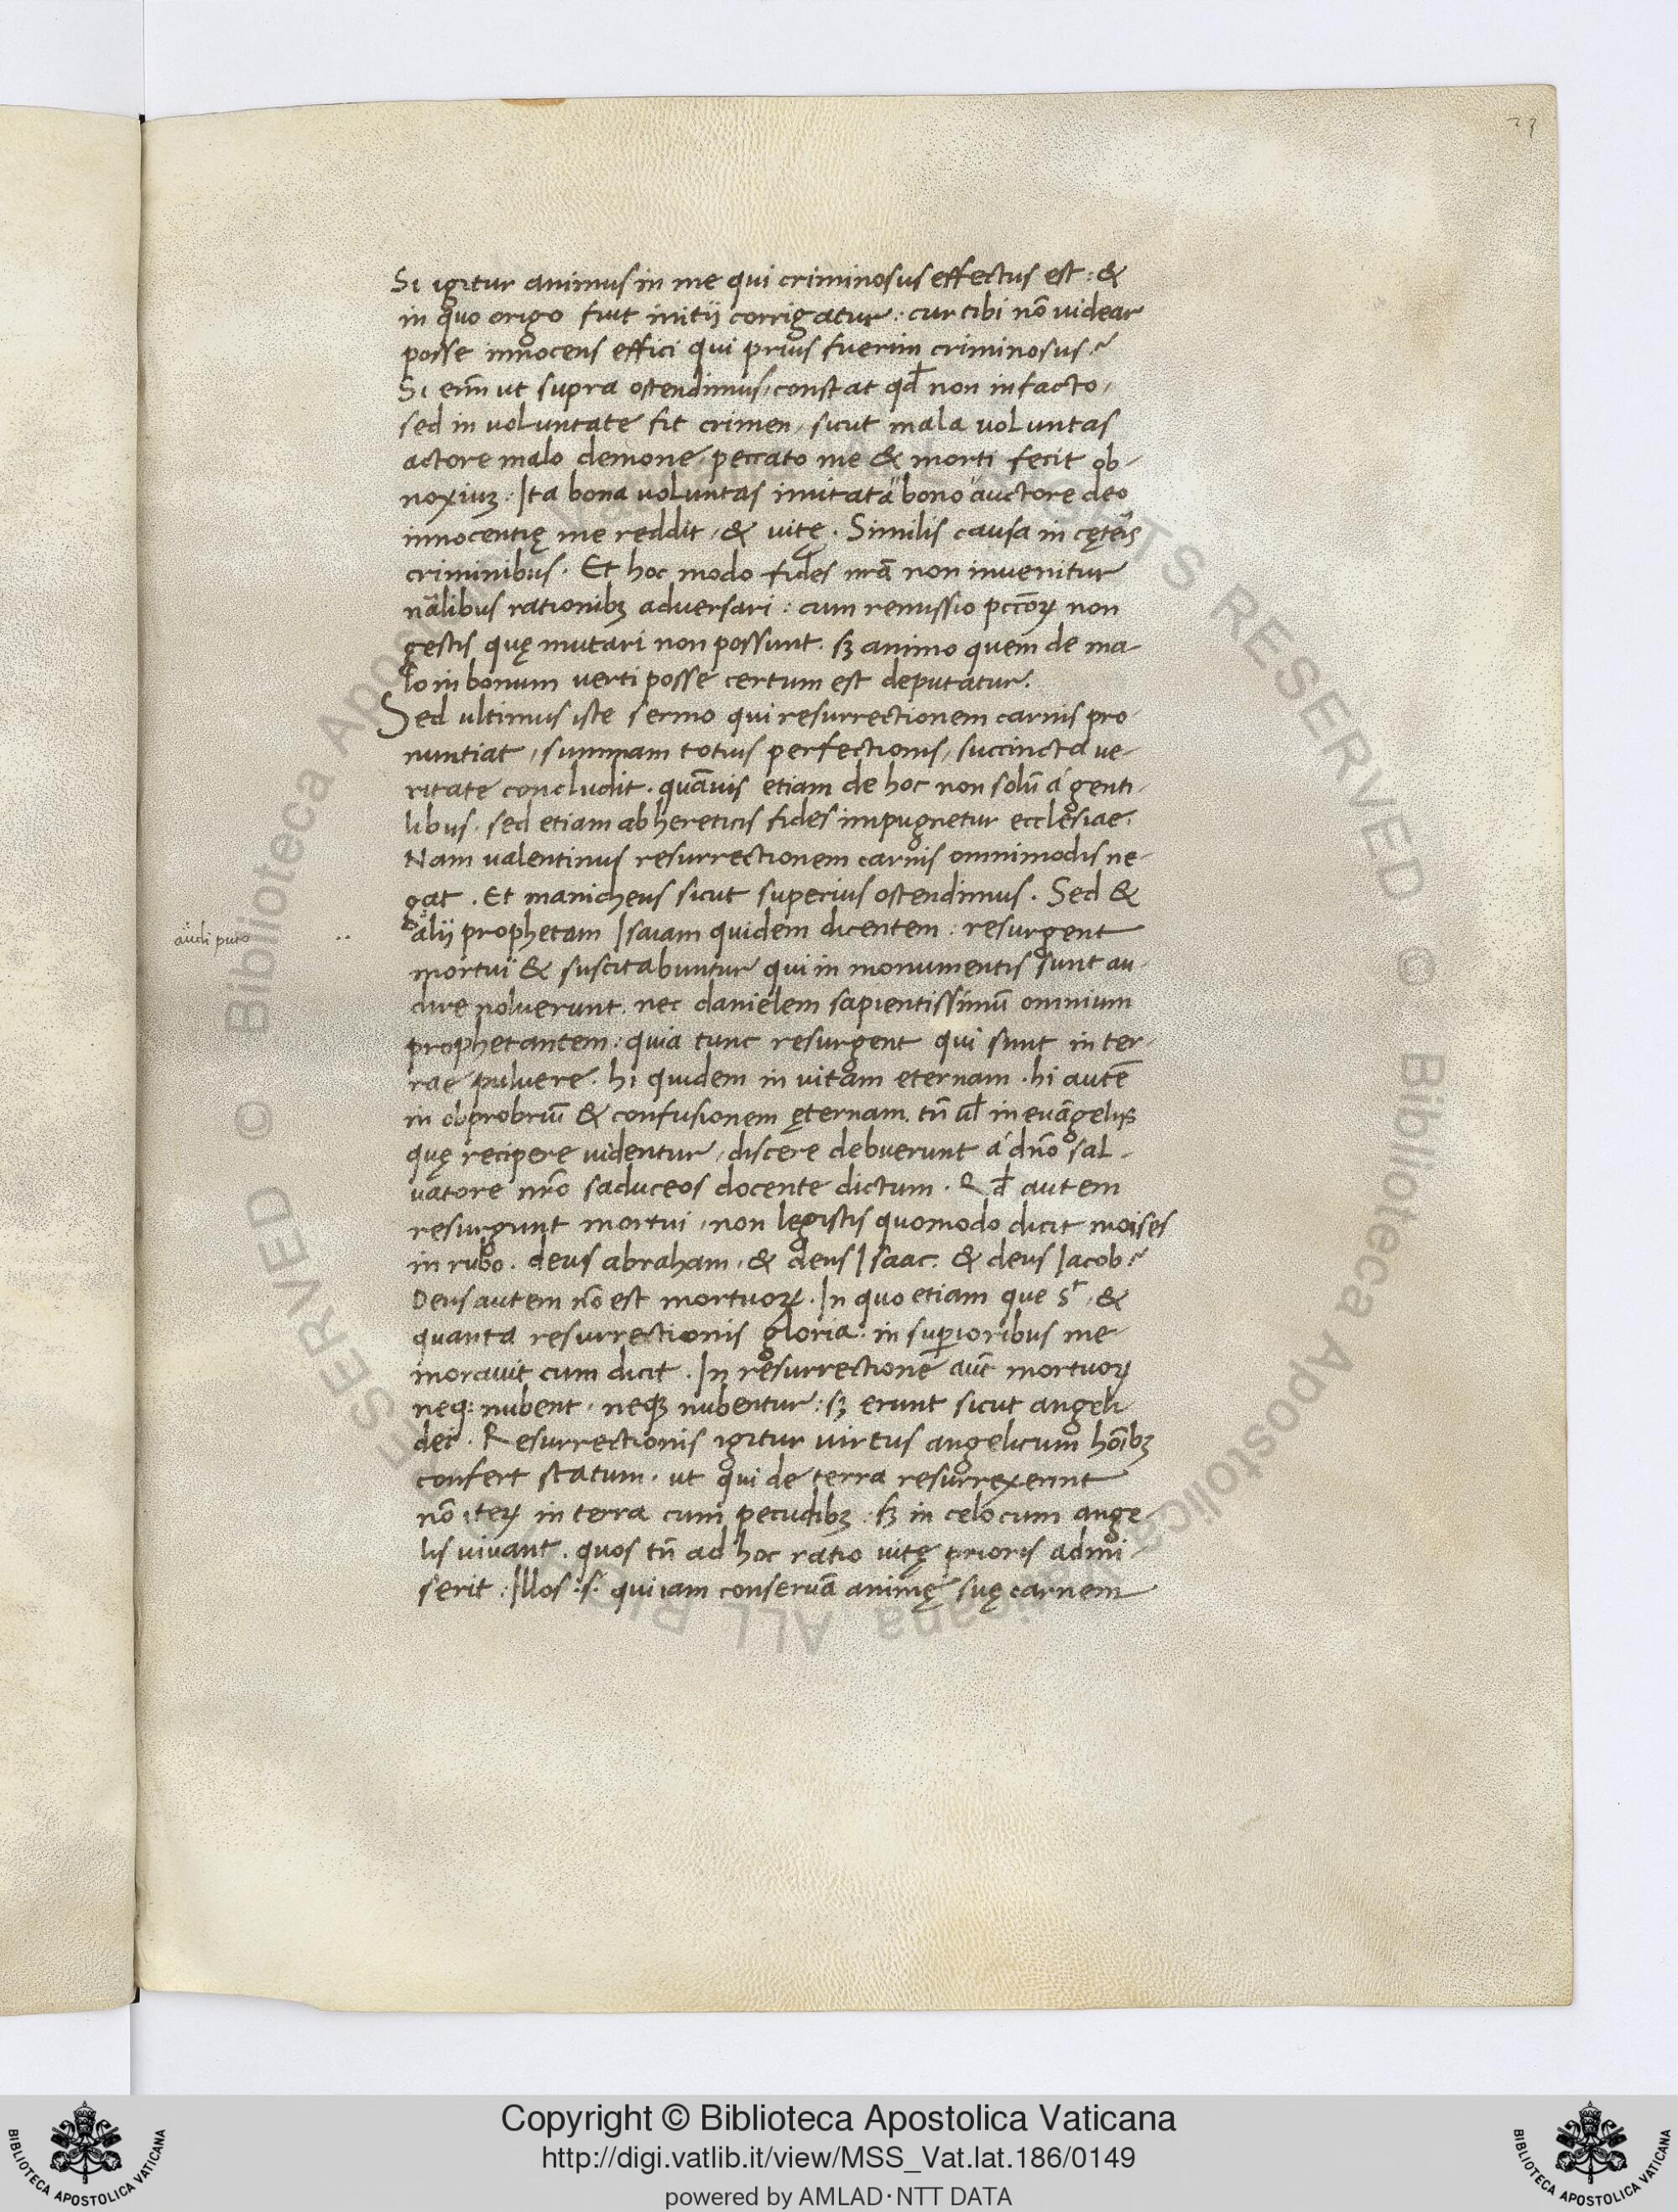 23
Si igitur animus in me qui criminosus effectus est: &
in quo origo fiut initij corrigatur: cur tibi nō videar
posse innocens effici qui prius fuerim criminosus?
Si enī ut supra ostendimus, constat qđ non in facto,
sed in voluntate fit crimen, sicut mala voluntas
actore malo demone, peccato me & morti fecit ob-
noxiuꝫ: Ita bona voluntas imitata bono auctore deo
innocentię me reddit, & vitę. Similis causa in cęteris
criminibus. Et hoc modo fides nrā non invenitur
nālibus rationibꝫ adversari: cum remissio pccōꝝ non
gestis quę mutari non possunt. sꝫ animo quem de ma-
lo in bonum verti posse certum est deputatur.
Sed ultimus iste sermo qui resurrectionem carnis pro-
nuntiat, summam totius perfectionis, succincta ve-
ritate concludit. quāvis etiam de hoc non solū á genti-
libus, sed etiam ab hereticis fides impugnetur ecclesiae.
Nam valentinus resurrectionem carnis omnimodis ne-
gat. Et manicheus sicut superius ostendimus. Sed &
audi puto
alij prophetam Isaiam quidem dicentem: resurgent
mortui & suscitabuntur qui in monumentis sunt au-
dire noluerunt. nec danielem sapientissimū omnium
prophetantem: quia tunc resurgent qui sunt in ter-
rae pulvere. hi quidem in vitam eternam. hi autē
in obprobriū & confusionem ęternam. tn̄ vl in evāgelijs
quę recipere videntur, discere debuerunt á dn̄o sal-
vatore nr̄o saduceos docente dictum. Qđ autem
resurgunt mortui, non legistis quomodo dicit moises
in rubo. deus abraham, & deus Isaac. & deus Iacob?
Deus autem nō est mortuoꝝ. In quo etiam que st, &
quanta resurrectionis gloria: in superioribus me-
moravit cum dicit. In resurrectionē aūt mortuoꝝ
neqꝫ nubent, neqꝫ nubentur: sꝫ erunt sicut angeli
dei. Resurrectionis igitur virtus angelicum hoībꝫ
confert statum. ut qui de terra resurrexerint
nō iteꝝ in terra cum pecudibꝫ: sꝫ in celo cum ange-
lis vivant. quos tn̄ ad hoc ratio vitę prioris admi-
serit: Illos .s. qui iam conservā animę suę carnem
Copyright © Biblioteca Apostolica Vaticana
http://digi.vatlib.it/view/MSS_Vat.lat.186/0149
powered by AMLAD·NTT DATA
BIBLIOTECA APOSTOLICA VATICANA
BIBLIOTECA APOSTOLICA VATICANA